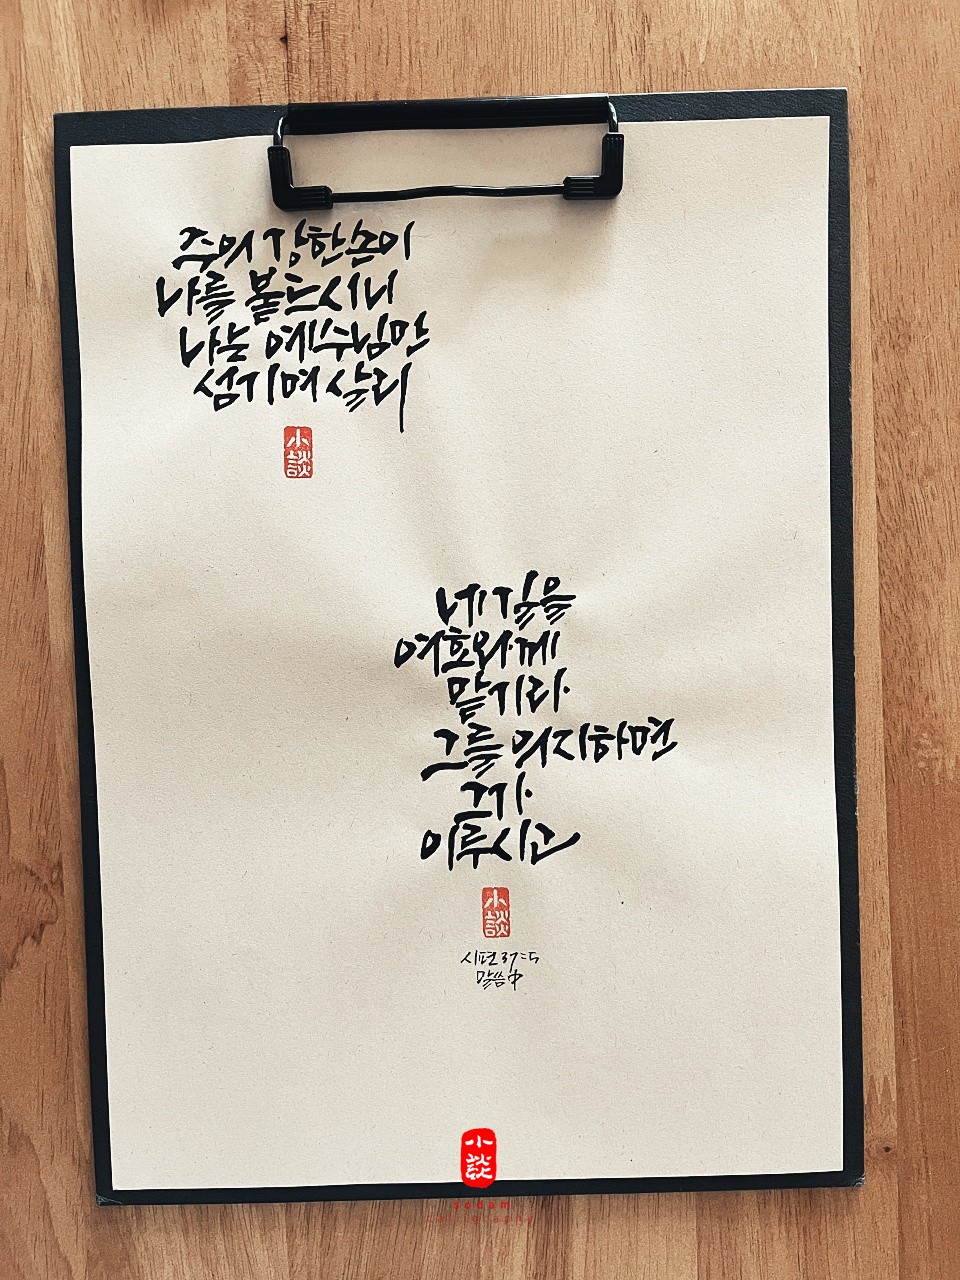 주의 강한손이
나를 붙드시니
나는 예수님만
섬기며 살리
小
談
네 길을
여호와께
맡기라
그를 의지하면
그가
이루시고
小
談
시편 37:5
말씀 中
小
談
sodam
calligraphy